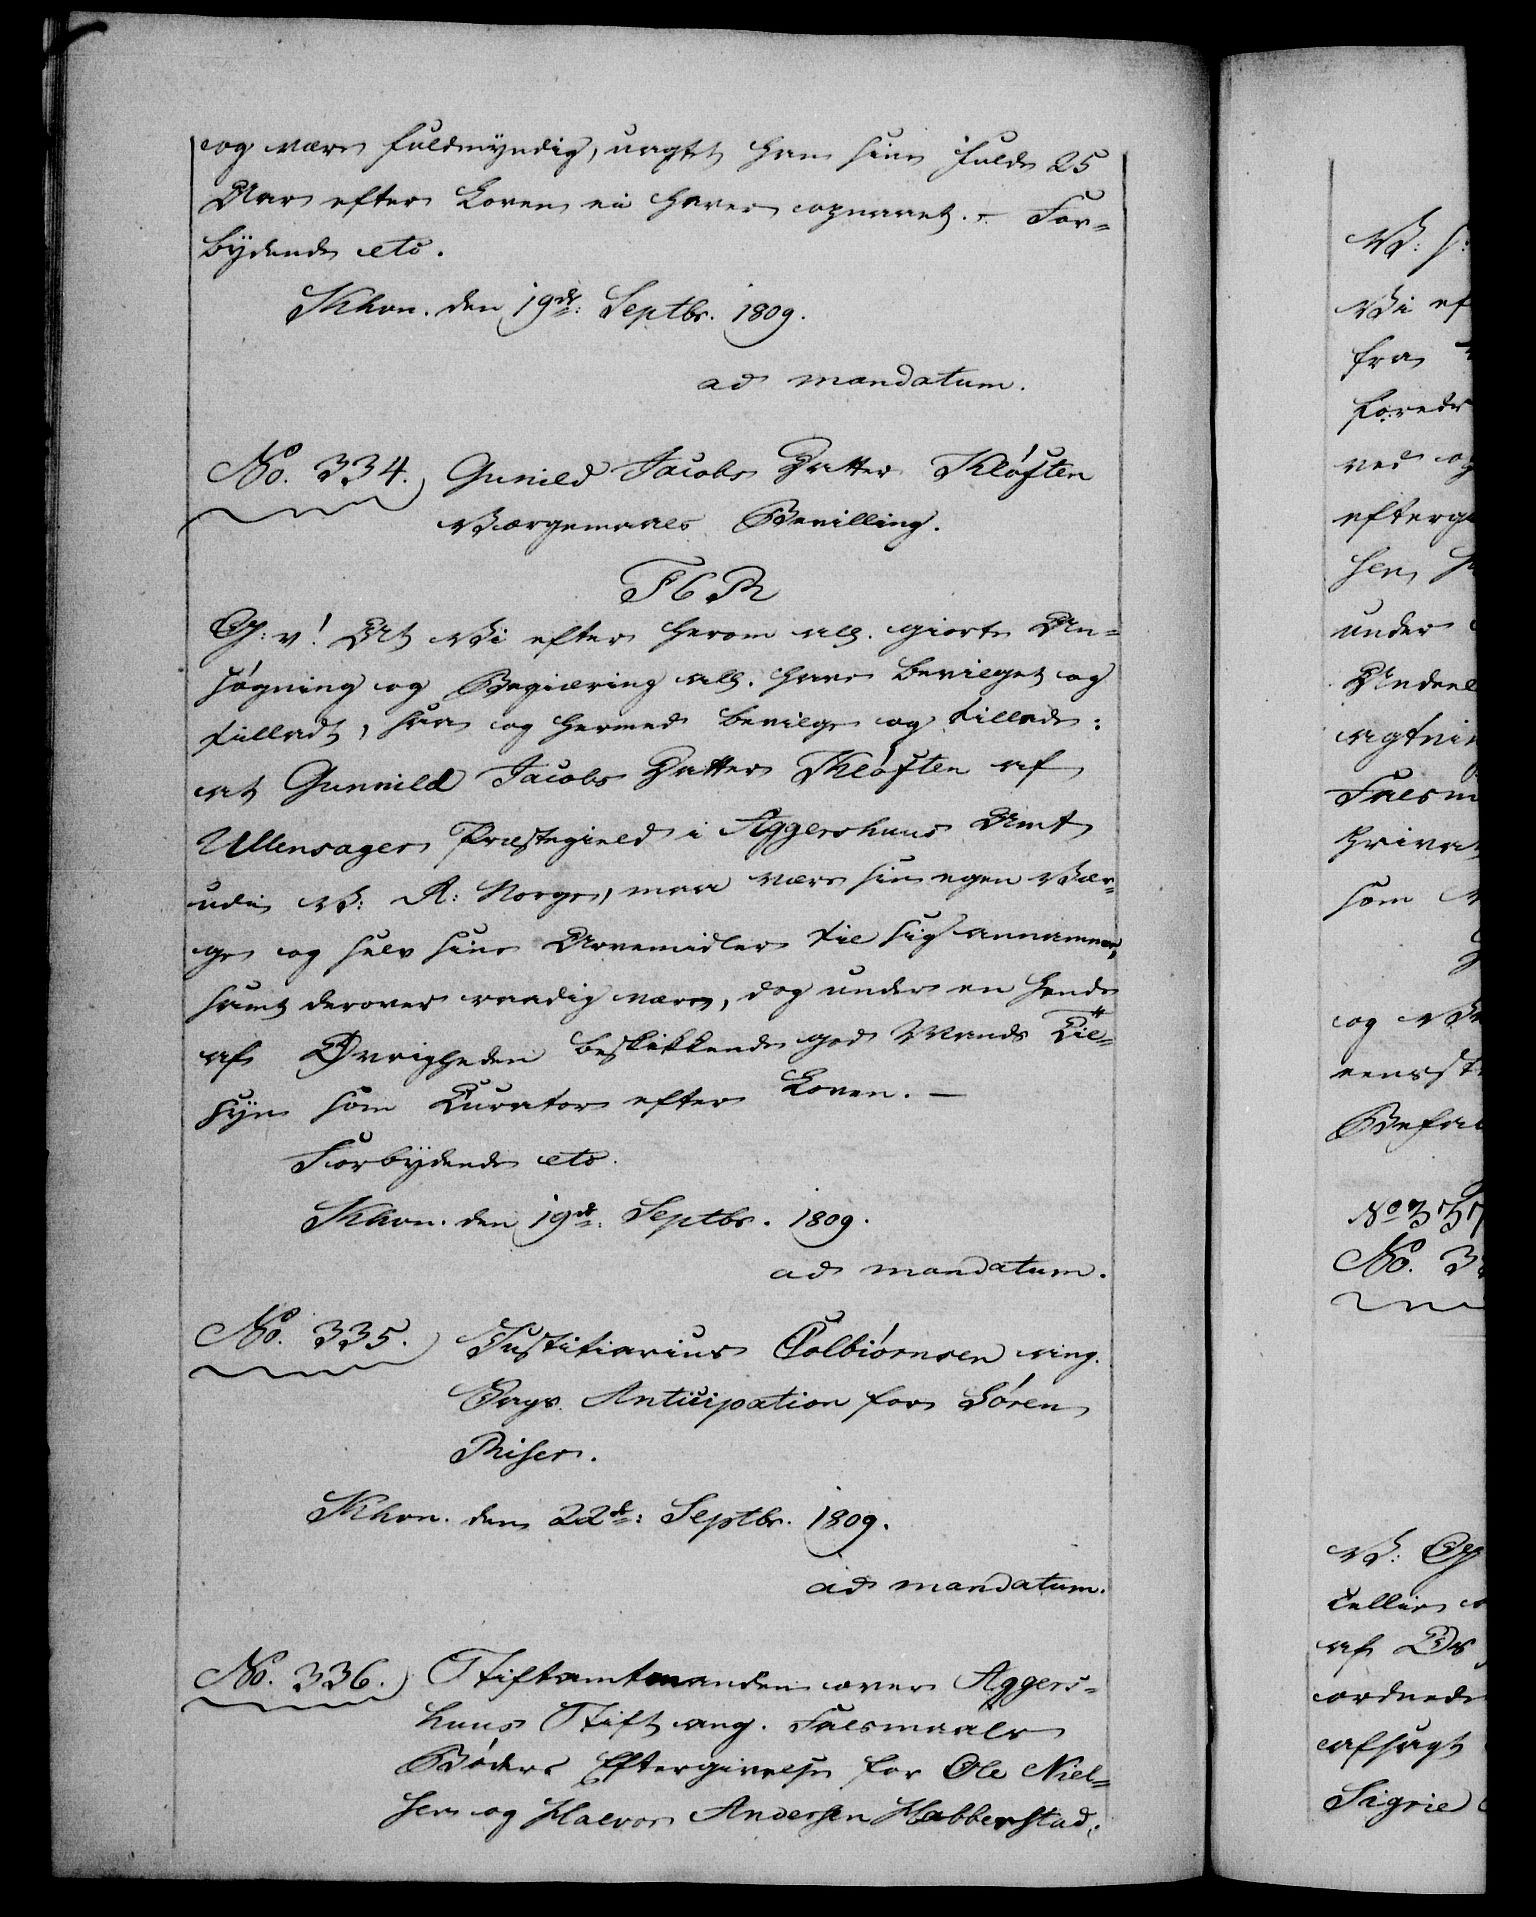 og være fuldmyndig, uagtet han sine fulde 25
Aar efter Loven ei haver opnaaet. - For-
bydende etc.
Khvn. den 19de: Septbr. 1809.
ad mandatum.
No. 334. Gunild Jacobs Datter Kløften
Værgemaals Bevilling.
F 6 R
G: v! At Vi efter herom all. giorte An-
søgning og Begiæring all. have bevilget og
tilladt, saa og hermed bevilge og tillade:
at Gunnild Jacobs Datter Kløften af
Ullensagers Præstegield i Aggershuus Amt
udi V: R: Norge, maa være sin egen Vær-
ge og selv sine Arvemidler til sig annamme,
samt derover raadig være, dog under en hende
af Øvrigheden beskikkende god Mands Til-
syn som Curator efter Loven. -
Forbydende etc.
Khvn. den 19de: Septbr. 1809.
ad mandatum.
No. 335. Justitiarius Colbiørnsen ang.
Sags Anticipation for Søren
Riser.
Khvn. den 22de: Septbr. 1809.
ad mandatum.
No. 336. Stiftamtmanden over Aggers-
huus Stift ang. Falsmaals
Bøders Eftergivelse for Ole Niel-
sen og Halvor Andersen Habberstad.
V: 
Vi ef
fra
foredr
ved og
efterg
sen
under
Andeel
agtni
Falsm
Privat
som
og
eensst
Befal
No 337
No. 3
V: G
cellie
af Os
ordnede
afsagt
Sigrie